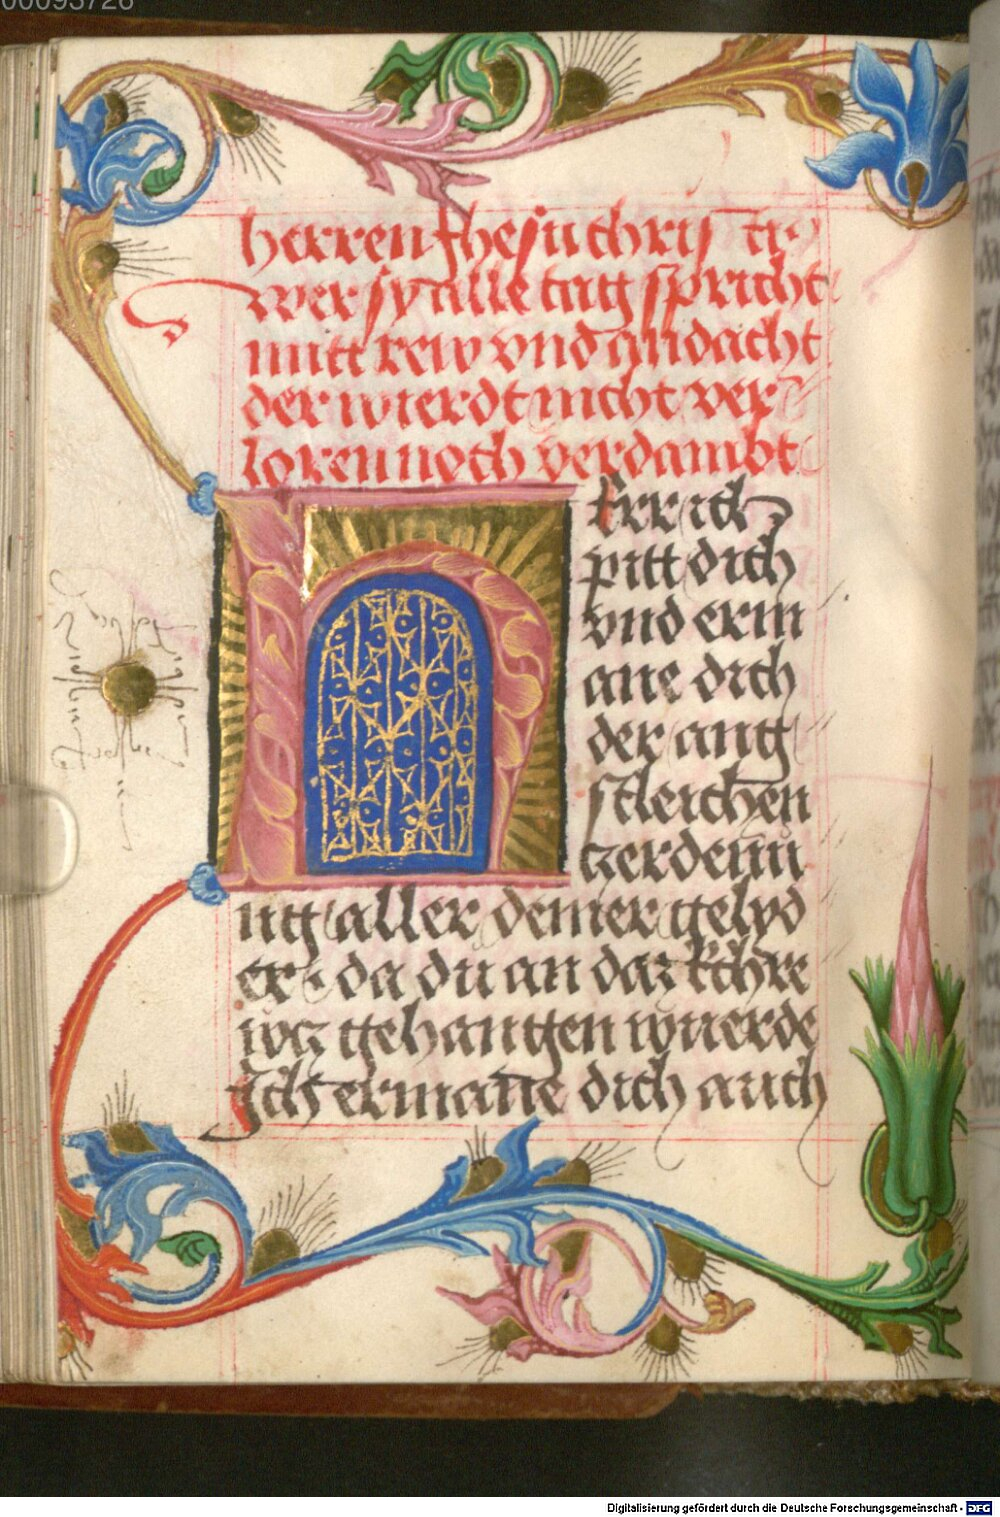 00093726
herren Jhesu christi
wer sy alle tag spricht
mitt rew vnd andacht
der wierdt nicht ver
loren noch verdambt
Herr ich
pitt dich
vnd erm
ane dich
der ang
stleichen
zerdenn
ng aller deiner gelyd
er da du an daz kchre
wz gehangen wuerde
Ich ermane dich auch
Digitalisierung gefördert durch die Deutsche Forschungsgemeinschaft - DFG